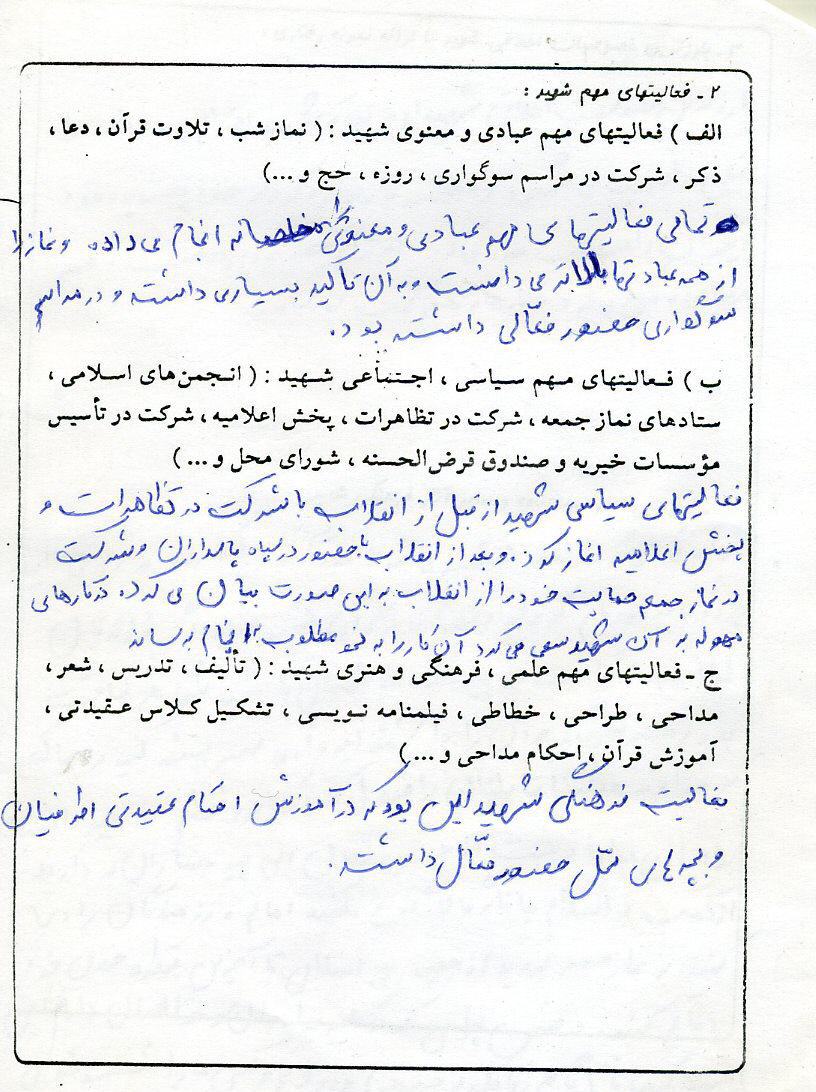 ۲ ـ فعالیتهای مهم شهید :
الف ) فعالیتهای مهم عبادی و معنوی شهید : ( نماز شب ، تلاوت قرآن ، دعا ،
ذکر ، شرکت در مراسم سوگواری ، روزه ، حج و ...)
تمامی فعالیتهای مهم عبادی و معنوی را مخلصانه انجام می داده و نماز را
از همه عبادتها بالاتر می دانست و به آن تأکید بسیاری داشته و در مراسم
سوگواری حضور فعّالی داشته بود.
ب ) فعالیتهای مهم سیاسی ، اجتماعی شهید : ( انجمن‌های اسلامی ،
ستادهای نماز جمعه ، شرکت در تظاهرات ، پخش اعلامیه ، شرکت در تأسیس
مؤسسات خیریه و صندوق قرض‌الحسنه ، شورای محل و ... )
فعالیتهای سیاسی شهید از قبل از انقلاب با شرکت در تظاهرات و
پخش اعلامیه اغاز کرد. و بعد از انقلاب با حضور در سپاه پاسداران و شرکت
در نماز جمعه حمایت خود را از انقلاب به این صورت بیان می کرد، در کارهای
محوله به آن شهید سعی می کرد آن کار را به نحو مطلوب به انجام برساند
ج ـ فعالیتهای مهم علمی ، فرهنگی و هنری شهید : ( تألیف ، تدریس ، شعر ،
مداحی ، طراحی ، خطاطی ، فیلمنامه نویسی ، تشکیل کلاس عقیدتی ،
آموزش قرآن ، احکام مداحی و ...)
فعالیت فرهنگی شهید این بود که در آموزش احکام عقیدتی اطرافیان
و بچه های محّل حضور فعّال داشته.